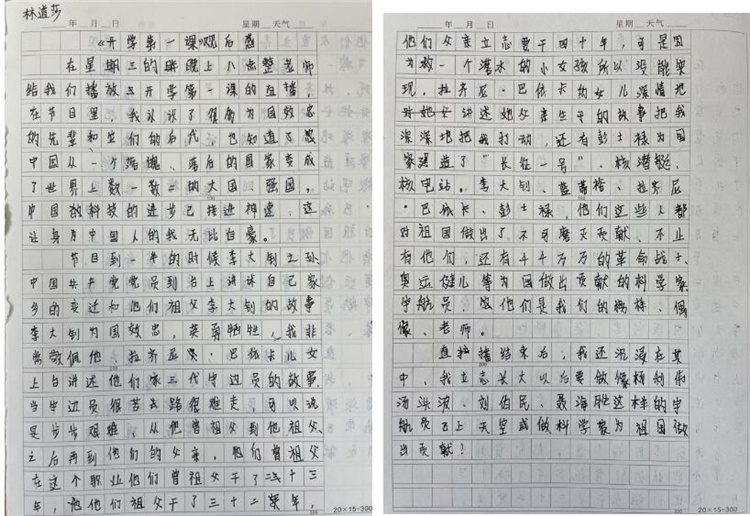 林道莎
年 月 日 星期 天气
《开学第一课》观后感
在星期三的晚上八点整老师
给我们播放了开学第一课的直播,
在节目里,我认识了很多为国效忠
的先辈和空们的后代,也知道了
中国从一个落后的国家变成
了世界上数一数二的大国、强国,
中国的科技的进步已接进神速,这
让身为中国人的我无比自豪。
节目到一半的时候李大钊之孙
中国共产党党员到台上讲述自己家
乡的变迁和他们祖父李大钊的故事
李大钊为国效忠,英勇牺牲,我非
常敬佩他、拉齐尼·巴依卡儿女
上台讲述他们家三代守边员的故事,
当守边员很苦,路很难走,可以说
是步步艰难,从他曾祖父到他祖父
之后再到他们的父亲,他们曾祖父
在这个职业他们曾祖父干了二十三
年,他们祖父干了三十二年,
20×15=300
年 月 日 星期 天气
他们父亲立志要干四十年,可是因
为救一个落水的小女孩所以没能实
现,拉齐尼·巴依卡的女儿深情地
讲述她父亲生平的故事把我
深深地把我打动,还有彭士禄为国
家建造了“长征一号”、核潜艇、
核电站。李大钊、拉齐尼
·巴依卡、彭士禄,他们这些人都
对祖国做出了不可磨灭贡献、不止
有他们,还有千千万万的革命战士,
奥运健儿等为国做出贡献的科学家
宇航员,他们是我们的榜样、偶
像、老师。
直播结束后,我还沉浸在其
中,我立志长大以后要做像杨利伟
汤洪波、刘伯明、聂海胜这样的宇
航员飞上天空或做科学家为祖国做
出贡献!
20×15=300